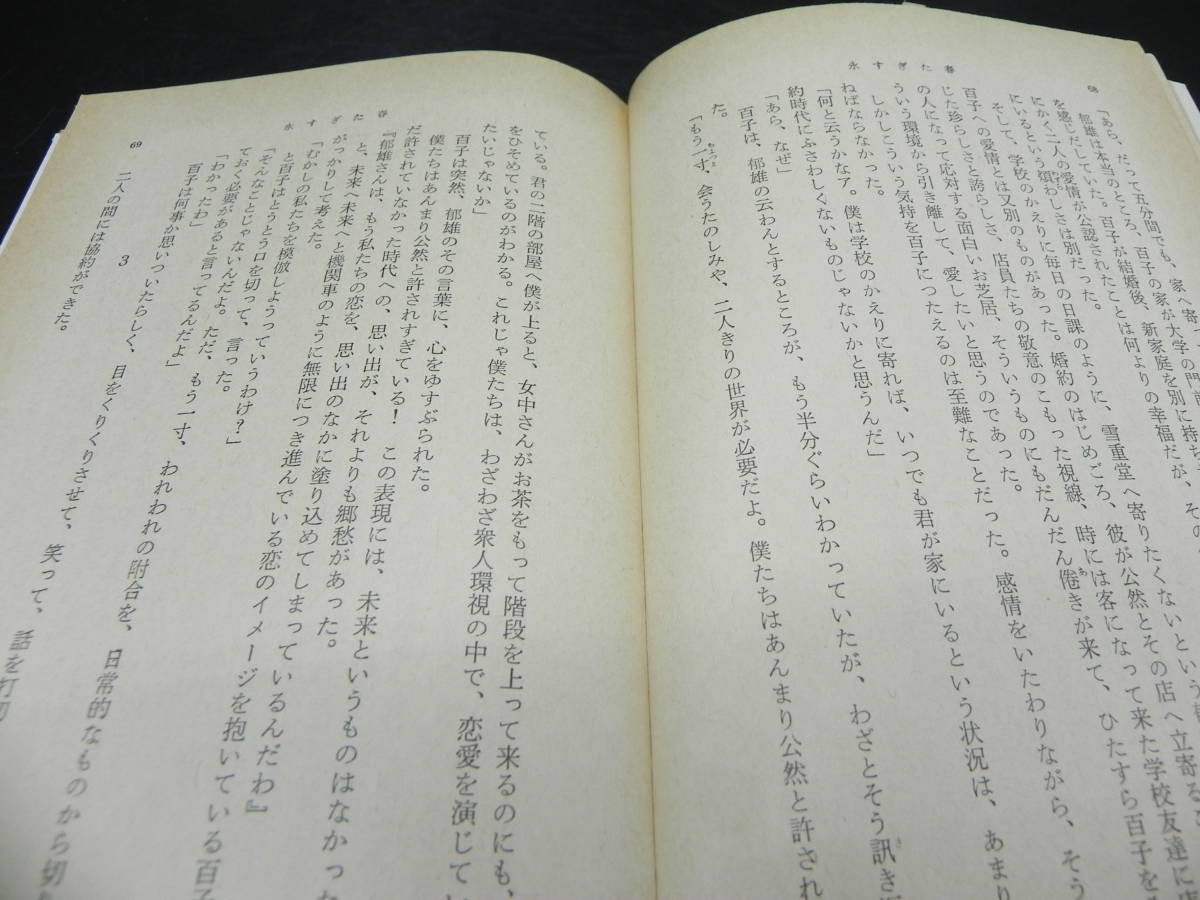 永すぎた春
68
「あら、だって五分間でも、家へ寄
郁雄は本当のところ、百子の家が大学の門前
を感じだしていた。百子が結婚後、新家庭を別に持ち
にかく二人の愛情が公認されたことは何よりの幸福だが、その
にいるという煩わしさは別だった。
そして、学校のかえりに毎日の日課のように、雪重堂へ寄りたくないという
百子への愛情とは又別のものがあった。婚約のはじめごろ、彼が公然とその店へ立寄るこ
じた珍らしさと誇らしさ、店員たちの敬意のこもった視線、時には客になって来た学校友達に
の人になって応対する面白いお芝居、そういうものにもだんだん倦きが来て、ひたすら百子を
ういう環境から引き離して、愛したいと思うのであった。
しかしこういう気持を百子につたえるのは至難なことだった。感情をいたわりながら、そう
ねばならなかった。
「何と云うかなア。僕は学校のかえりに寄れば、いつでも君が家にいるという状況は、あまり
約時代にふさわしくないものじゃないかと思うんだ」
「あら、なぜ」
百子は、郁雄の云わんとするところが、もう半分ぐらいわかっていたが、わざとそう訊き
た。
「もう一寸、会うたのしみや、二人きりの世界が必要だよ。僕たちはあんまり公然と許され
永すぎた春
69
ている。君の二階の部屋へ僕が上ると、女中さんがお茶をもって階段を上って来るのにも、
をひそめているのがわかる。これじゃ僕たちは、わざわざ衆人環視の中で、恋愛を演じて
たいじゃないか」
百子は突然、郁雄のその言葉に、心をゆすぶられた。
僕たちはあんまり公然と許されすぎている! この表現には、未来というものはなかった
だ許されていなかった時代への、思い出が、それよりも郷愁があった。
『郁雄さんは、もう私たちの恋を、思い出のなかに塗り込めてしまっているんだわ』
と、未来へ未来へと機関車のように無限につき進んでいる恋のイメージを抱いている百子
がっかりして考えた。
「むかしの私たちを模倣しようっていうわけ?」
と百子はとうとう口を切って、言った。
「そんなことじゃないんだよ。ただ、もう一寸、われわれの附合を、日常的なものから切り
ておく必要があると言ってるんだよ」
「わかったわ」
百子は何事か思いついたらしく、目をくりくりさせて、笑って、話を打切
3
二人の間には協約ができた。